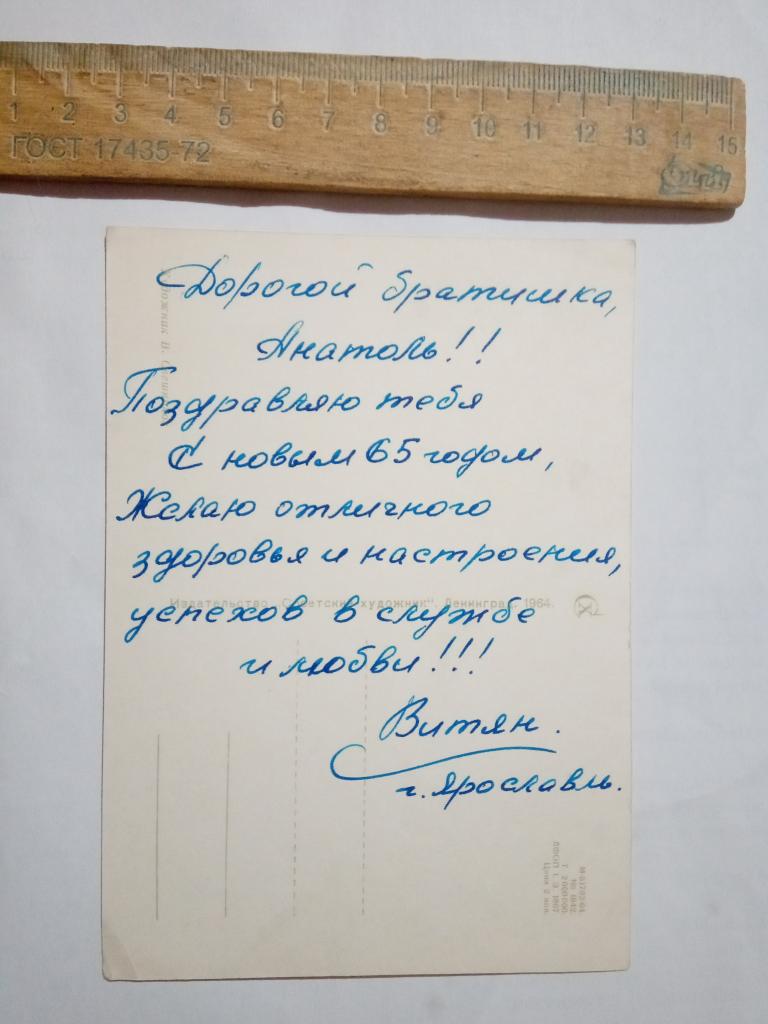 1 2 3 4 5 6 7 8 9 10 11 12 13 14 15
ГОСТ 17435-72
Дорогой братишка,
Анатоль!!
Поздравляю тебя
С новым 65 годом,
Желаю отличного
здоровья и настроения,
Издательство „Советский художник“. Ленинград. 1964.
успехов в службе
и любви!!!
Витян.
г. Ярославль.
Цена 2 коп.